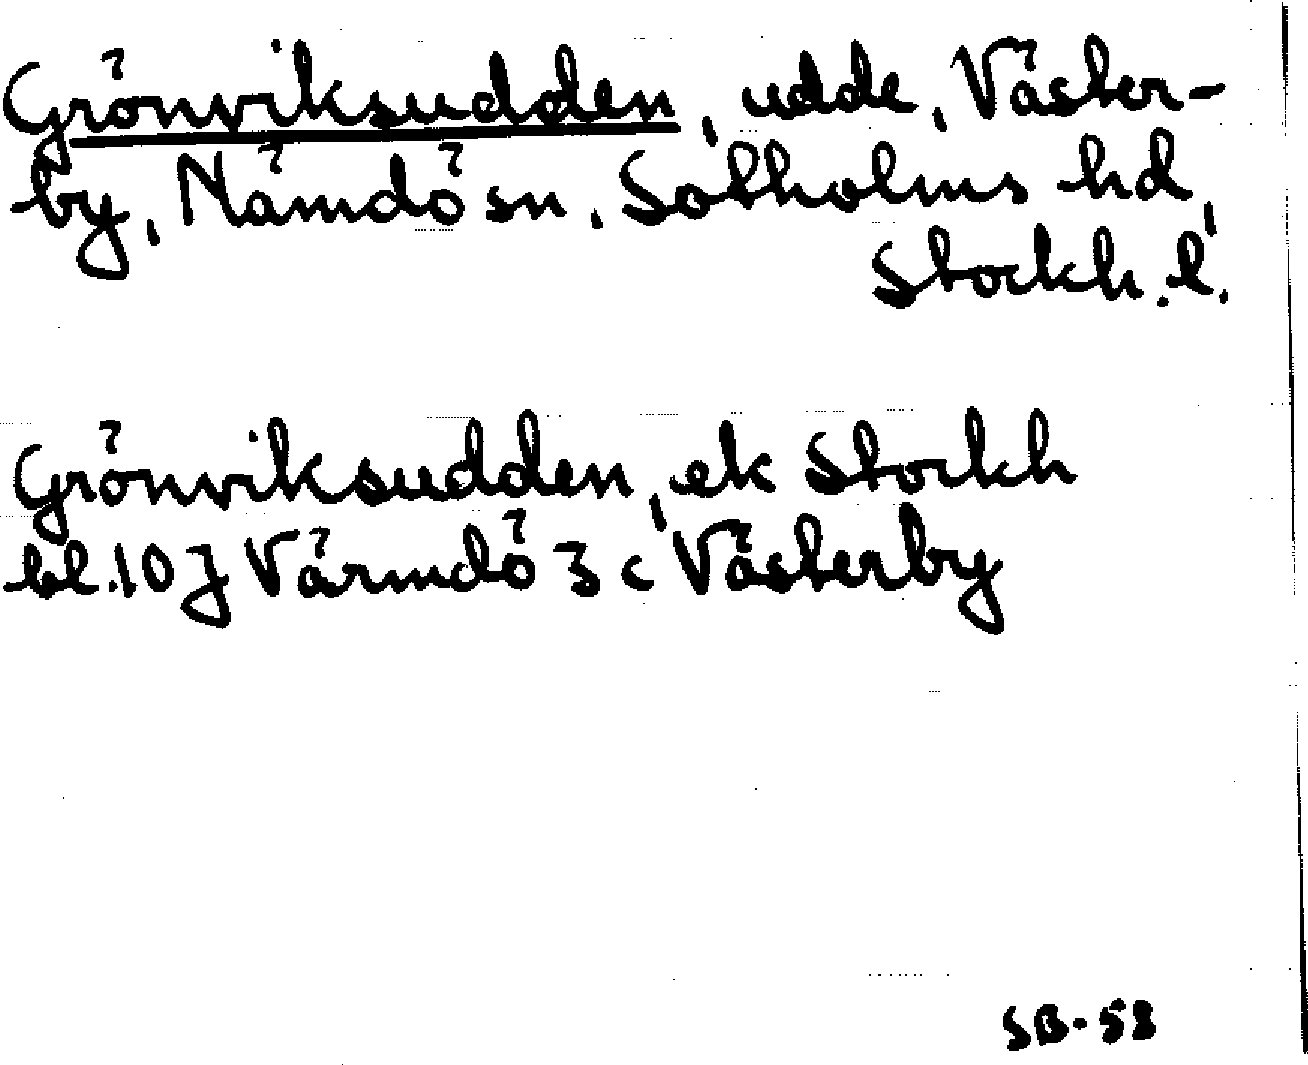 Grönviksudden, udde, Väster-
by, Nämdö sn, Sotholms hd,
Stockh. l.
Grönviksudden, ek Stockh
bl. 10 J Värmdö 3 c Västerby
SB-58